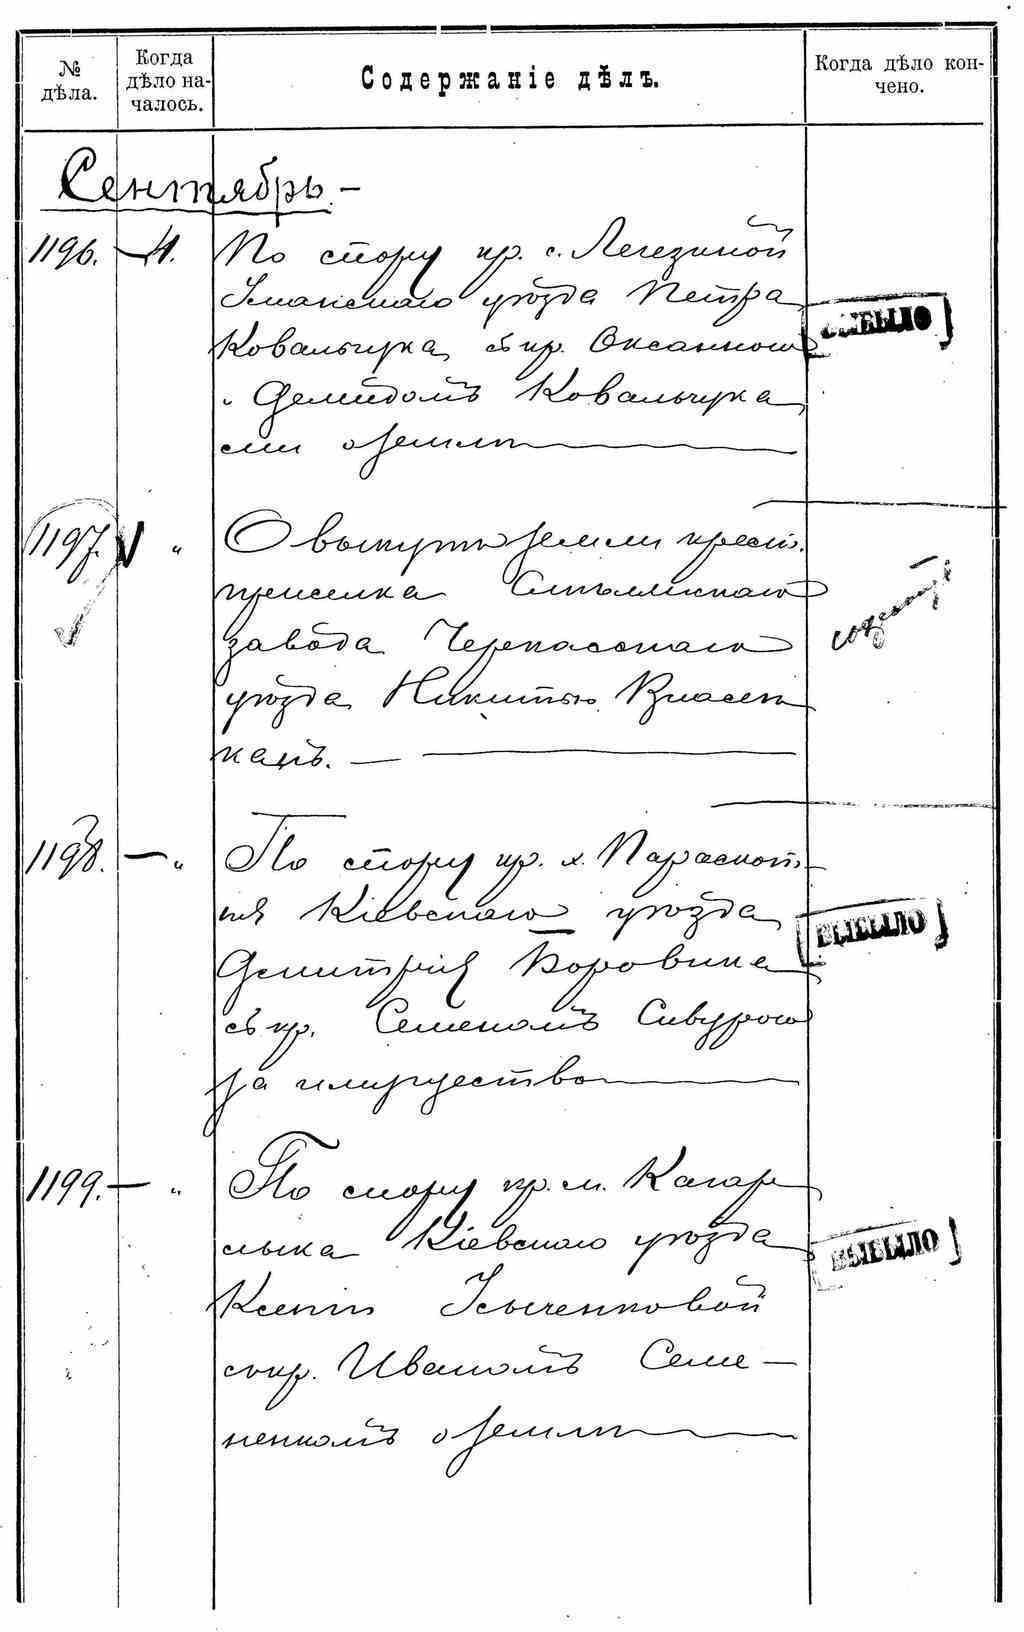 № дѣла.
Когда дѣло на-
чалось.
Содержаніе дѣлъ.
Когда дѣло кон-
чено.
Сентябрь. –
1196. – 4. По спору кр. с. Легезиной
Уманскаго уѣзда Петра
Ковальчука съ кр. Оксанною
и Демидомъ Ковальчука
ми о землѣ
ВЫБЫЛО
1197. V „ О выкупѣ земли крест.
приселка Смѣлянскаго
завода Черкасскаго
уѣзда Никитою Власен
ко
1198. – „ По спору кр. х.
Кіевскаго уѣзда
Дмитрія Боровика
съ кр. Семеномъ Сивурою
за имущество
ВЫБЫЛО
1199. – „ По спору кр. м. Кагар
лыка Кіевскаго уѣзда
Ксеніи Усыченковой
съ кр. Иваномъ Семе –
ненкомъ о землѣ
ВЫБЫЛО